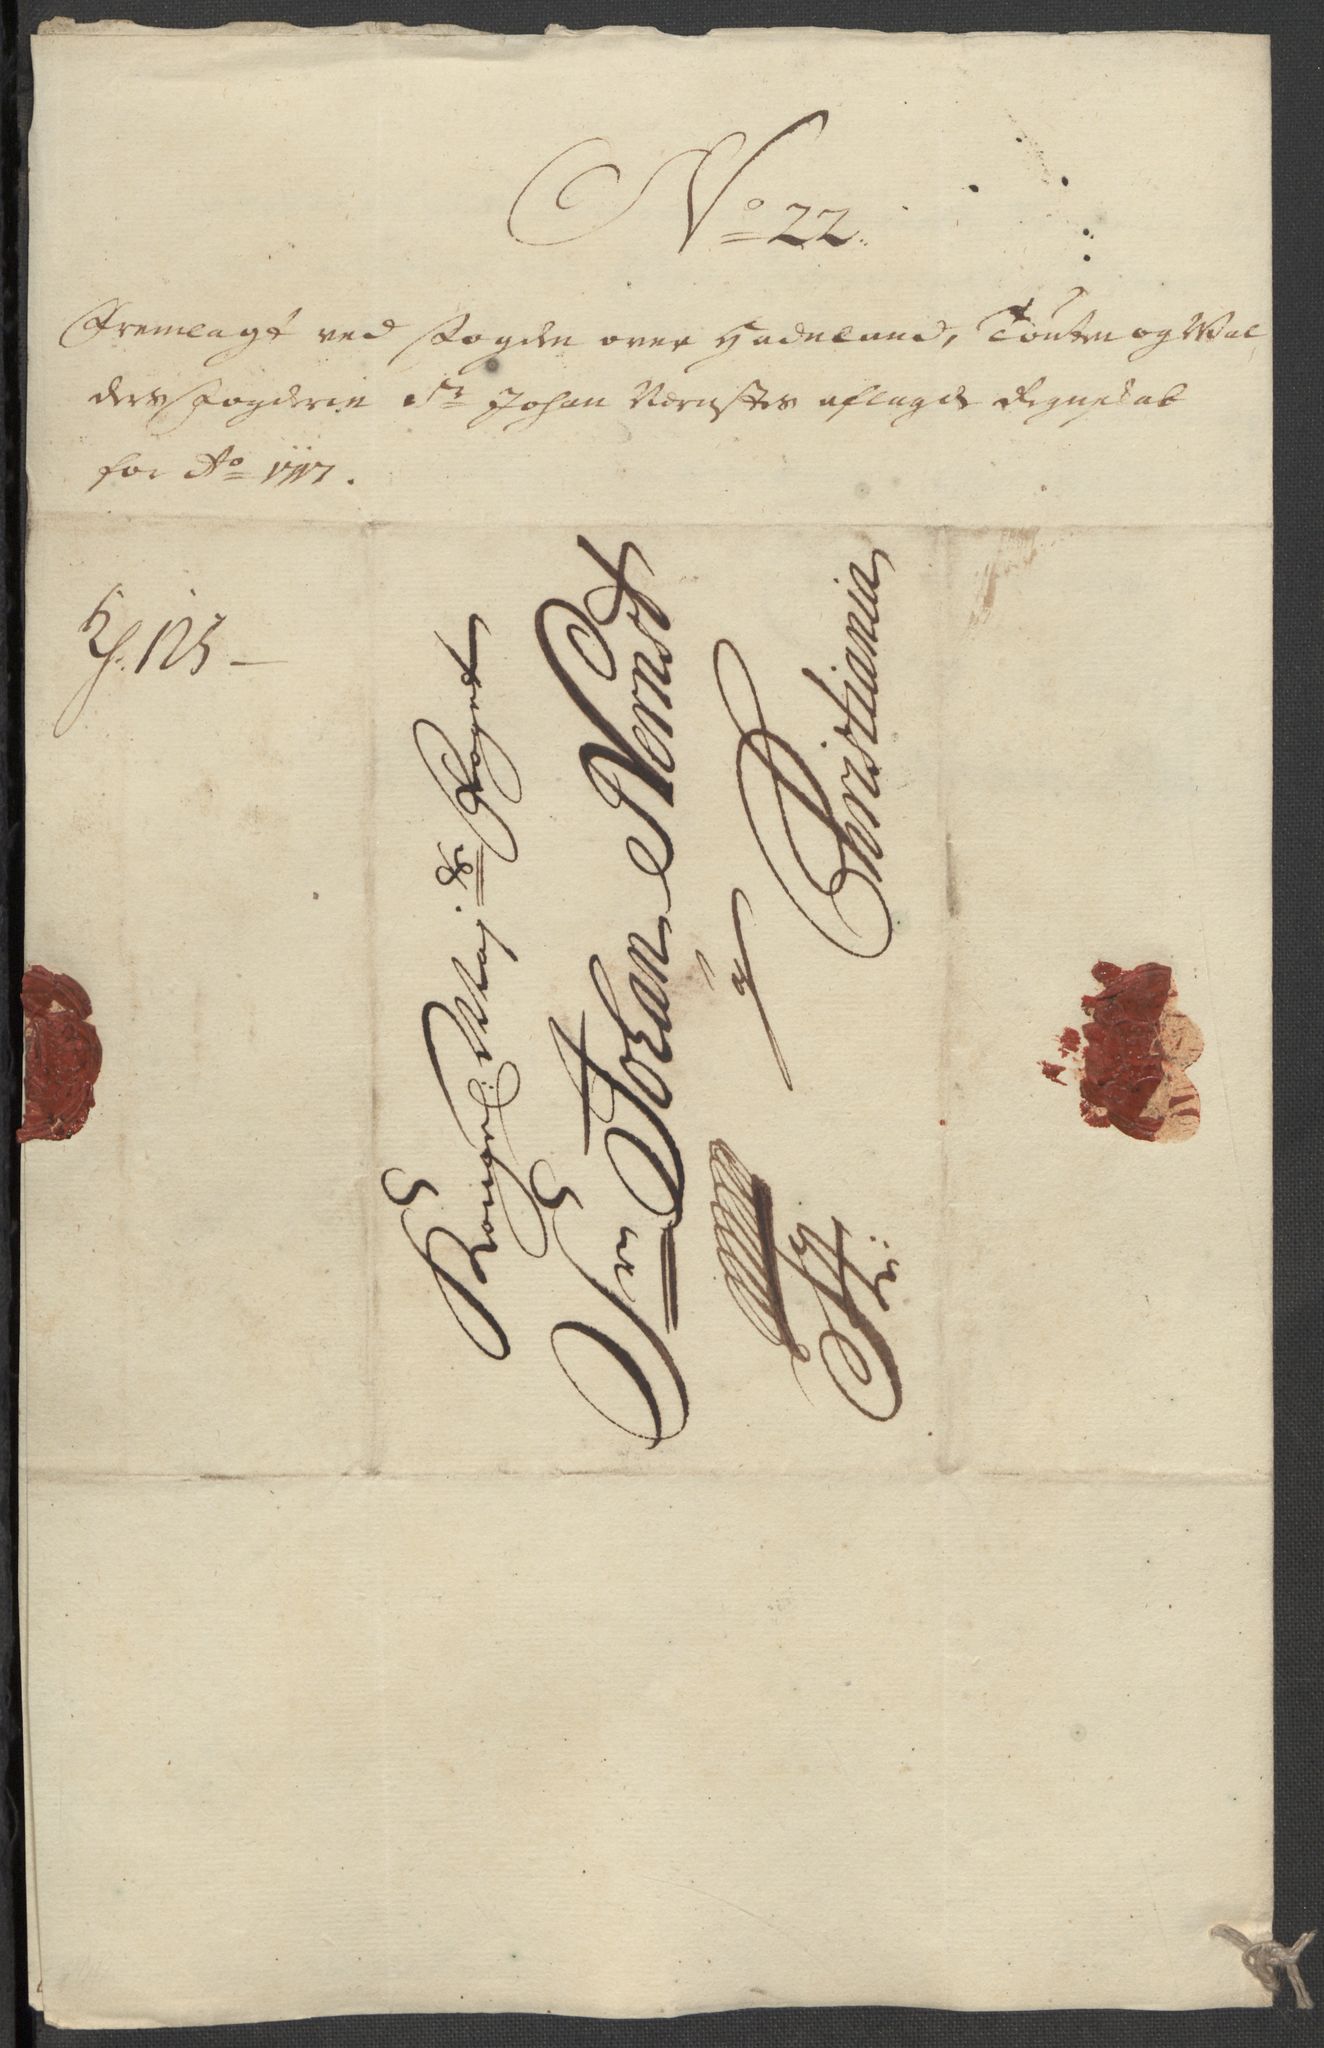 No 22.
Fremlagt ved Fogden over Hadeland, Toten og Wal,
ders Fogderie Sr Johan Nernstes aflagde Regnskab
for Ao 1717.
Kongl: Maj: Foget
Sr Johan Nernst
a
Christiania